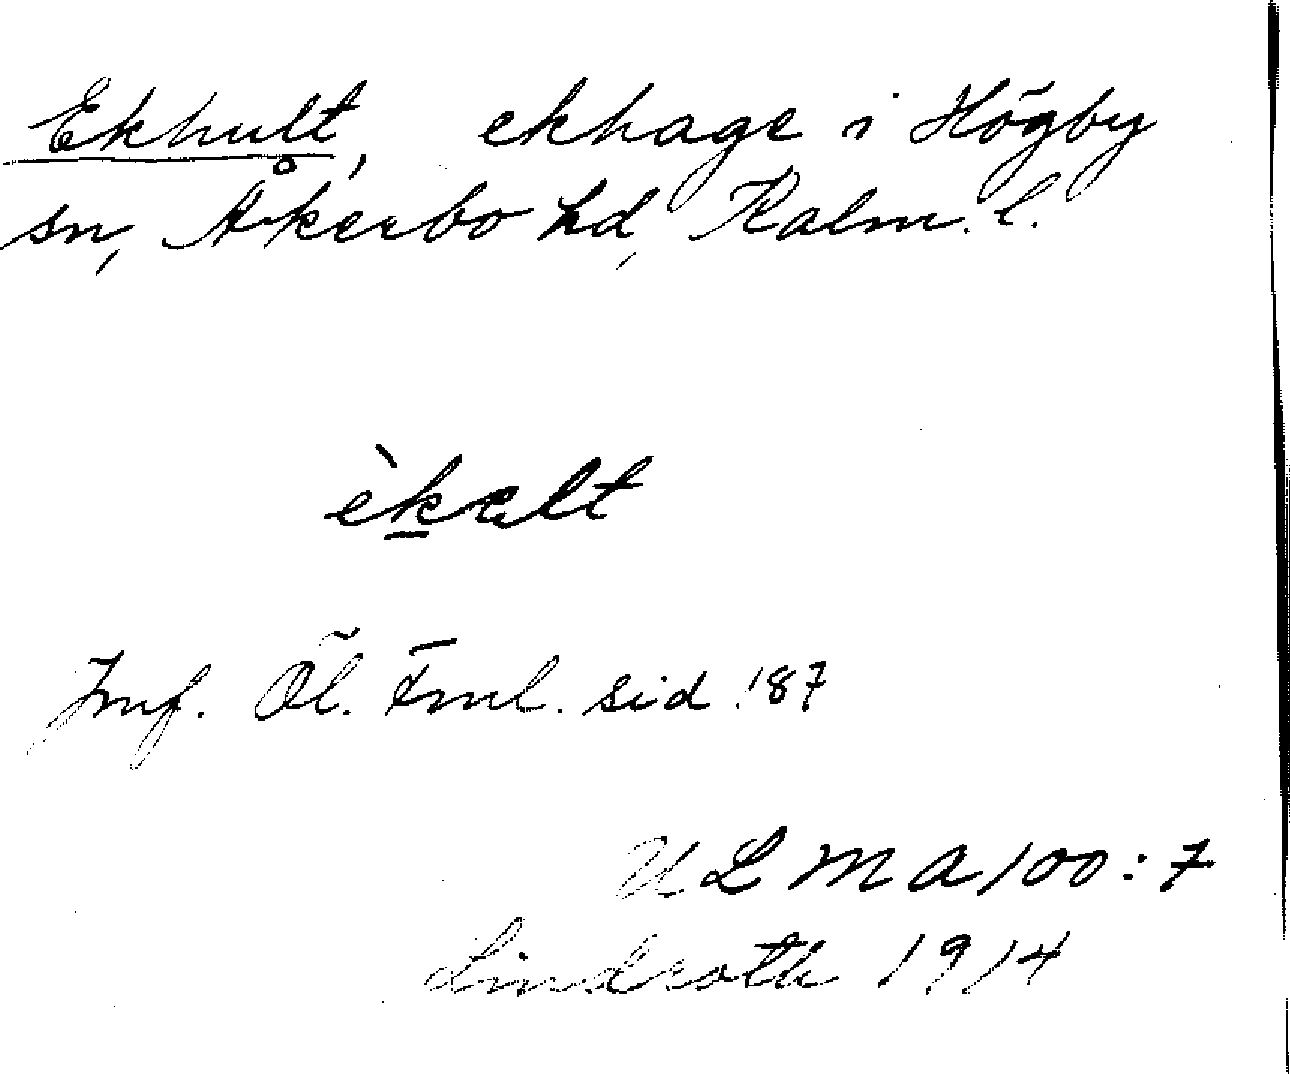 Ekhult, ekhage i Högby
sn, Åkerbo hd, Kalm. l.
èkelt
Jmf. Öl. Fml. sid. 187
ULMA 100:7
Lindroth 1914